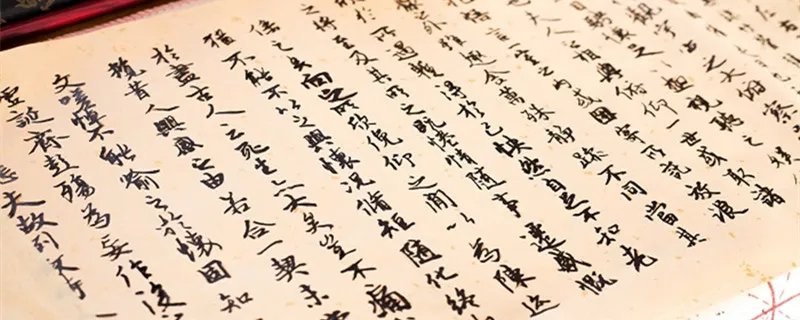 左右
觀宇宙之大俯察
騁懷足以極視聽之娛
也夫人之相與俯仰一世或取諸
言一室之內或因寄所託放浪
之外雖趣舍萬殊靜躁不同當其
於所遇暫得於己快然自足不知老
之將至及其所之既惓情隨事遷感慨
係之矣向之所欣俛仰之閒以為陳迹
猶不能不以之興懷況脩短隨化終
於盡古人云死生亦大矣豈不痛
攬昔人興感之由若合一契未
文嗟悼不能喻之於懷固知
虛誕齊彭殤為妄作後
悲夫故列敘時